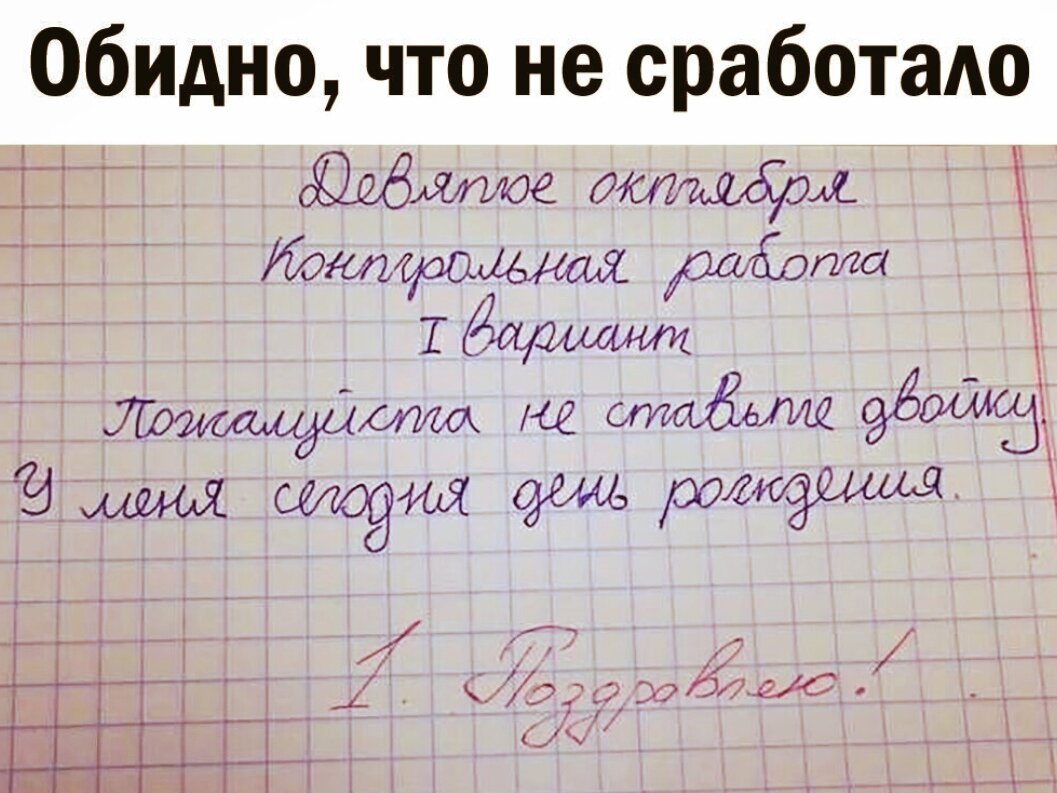 Обидно, что не сработало
Девятое октября
Контрольная работа
I вариант
Пожалуйста не ставьте двойку.
У меня сегодня день рождения.
1. Поздравляю!